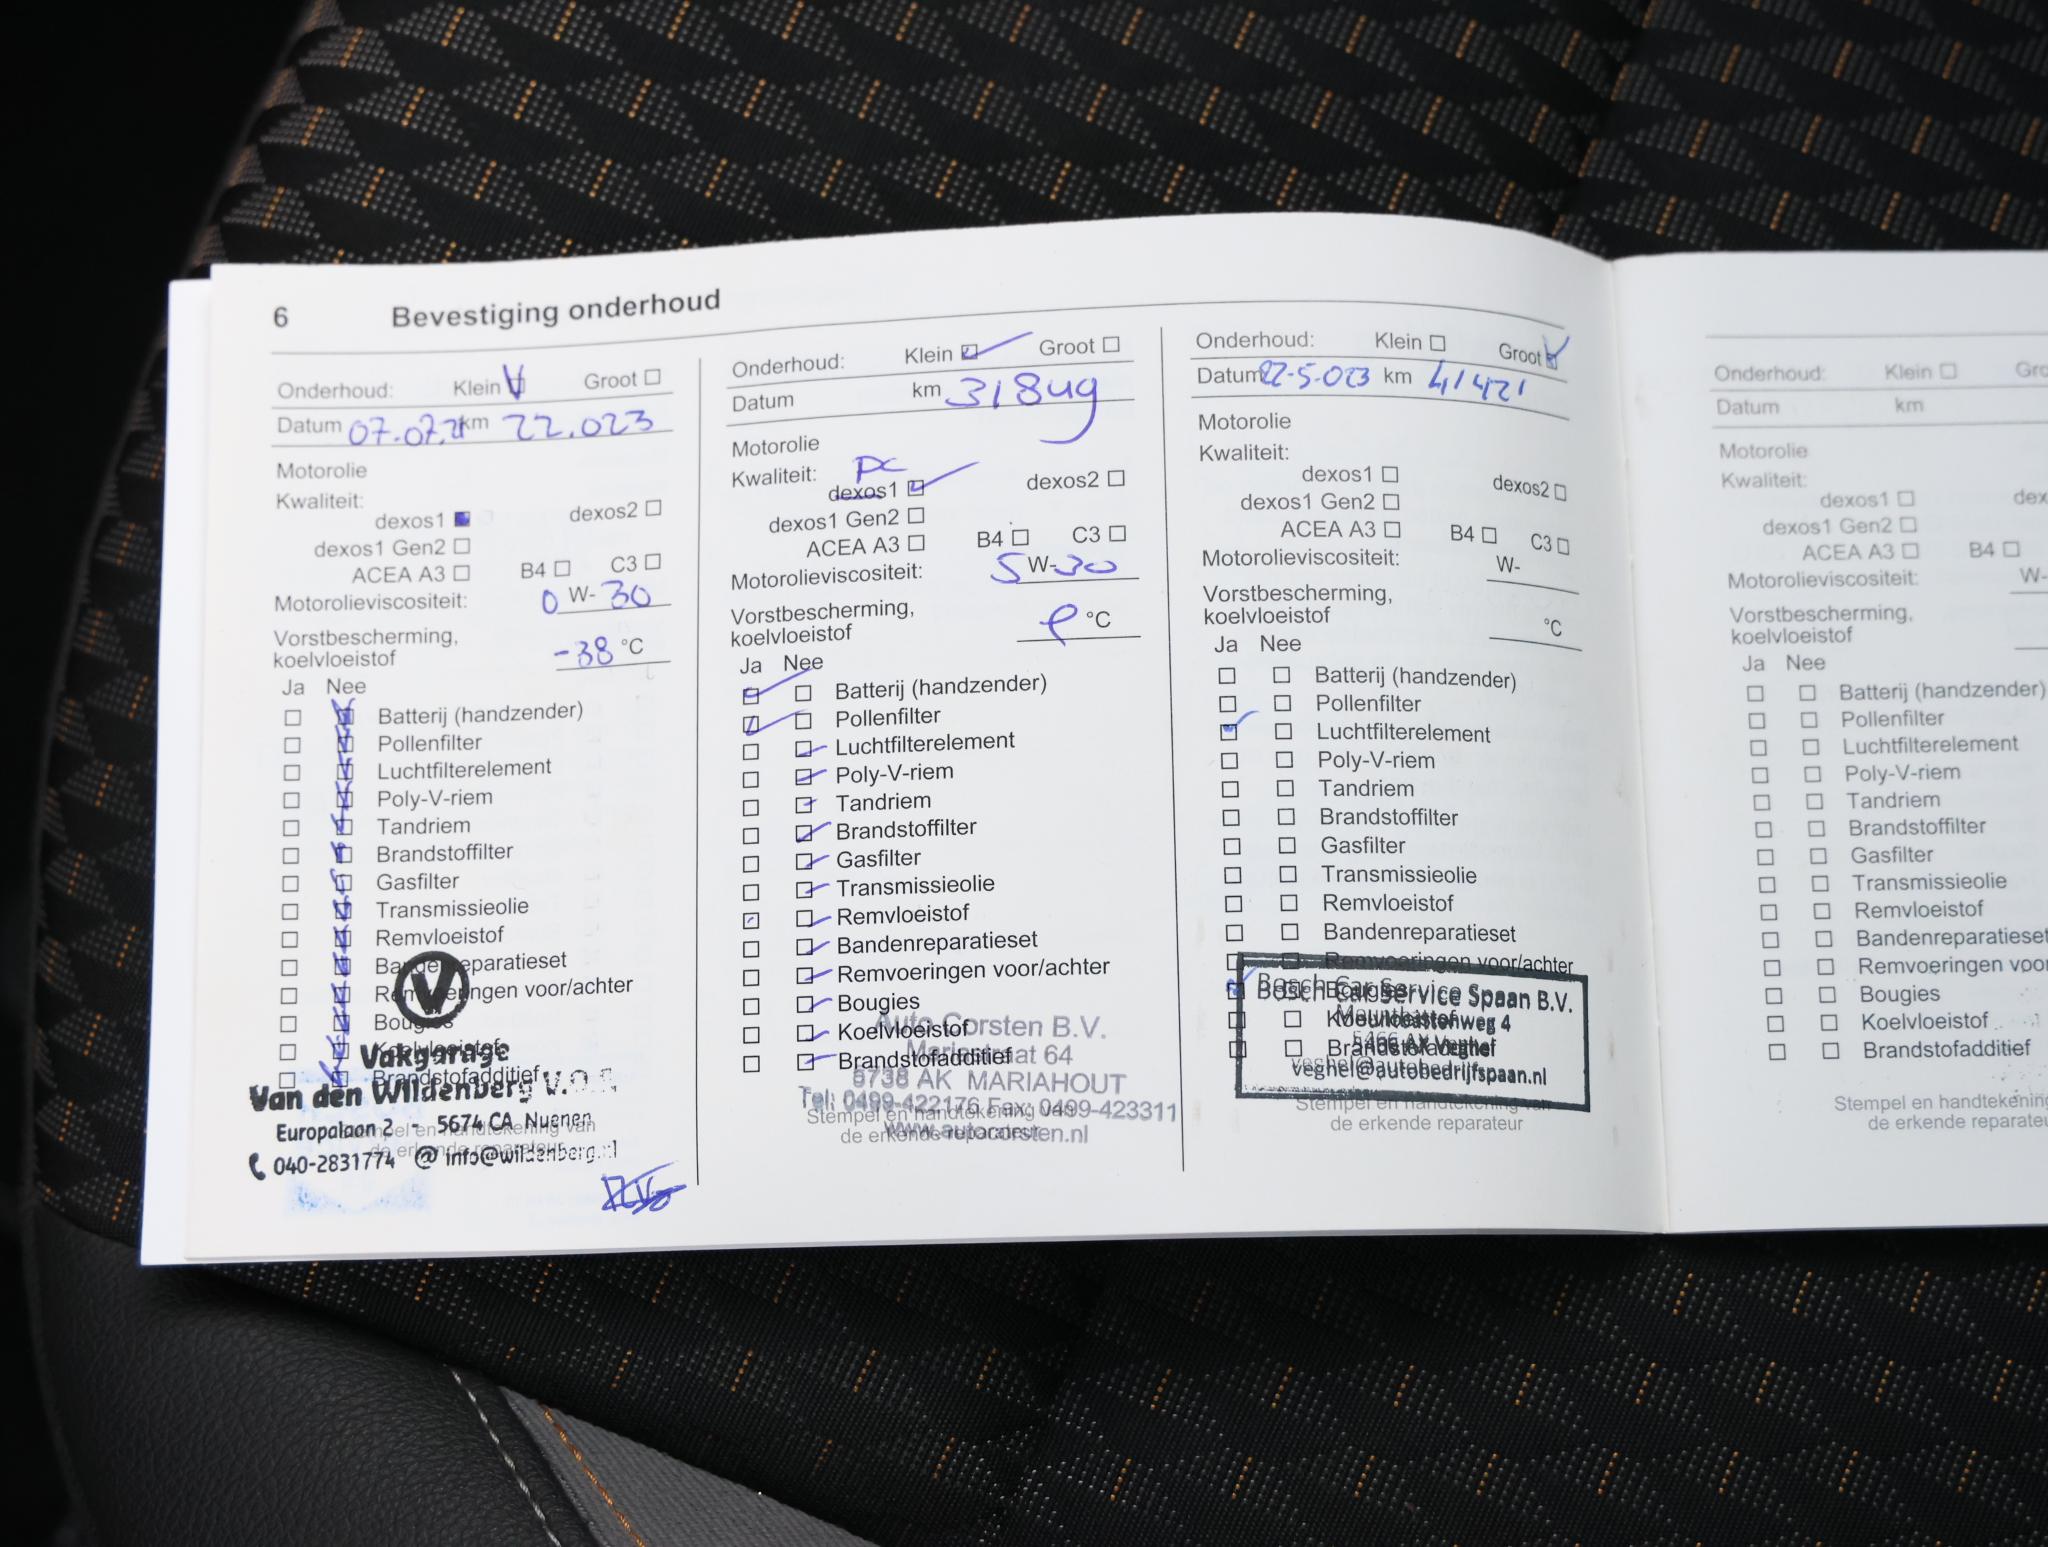 6 Bevestiging onderhoud
Onderhoud: Klein Groot
Datum 07.07.21 km 22.023
Motorolie
Kwaliteit:
dexos1 dexos2
dexos1 Gen2
ACEA A3 B4 C3
Motorolieviscositeit: 0 W- 30
Vorstbescherming,
koelvloeistof -38 °C
Ja Nee
Batterij (handzender)
Pollenfilter
Luchtfilterelement
Poly-V-riem
Tandriem
Brandstoffilter
Gasfilter
Transmissieolie
Remvloeistof
Bandenreparatieset
Remvoeringen voor/achter
Bougies
Koelvloeistof
Brandstofadditief
Vakgarage
Van den Wildenberg V.O.F.
Europalaan 2 - 5674 CA Nuenen
040-2831774 @ info@wildenberg.nl
Stempel en handtekening van
de erkende reparateur
Onderhoud: Klein Groot
Datum km 31849
Motorolie
Kwaliteit:
dexos1 dexos2
dexos1 Gen2
ACEA A3 B4 C3
Motorolieviscositeit: 5 W-30
Vorstbescherming,
koelvloeistof °C
Ja Nee
Batterij (handzender)
Pollenfilter
Luchtfilterelement
Poly-V-riem
Tandriem
Brandstoffilter
Gasfilter
Transmissieolie
Remvloeistof
Bandenreparatieset
Remvoeringen voor/achter
Bougies
Koelvloeistof
Brandstofadditief
Auto Corsten B.V.
Mariastraat 64
5738 AK MARIAHOUT
Tel: 0499-422176 Fax: 0499-423311
www.autocorsten.nl
Stempel en handtekening van
de erkende reparateur
Onderhoud: Klein Groot
Datum 22-5-023 km 41421
Motorolie
Kwaliteit:
dexos1 dexos2
dexos1 Gen2
ACEA A3 B4 C3
Motorolieviscositeit: W-
Vorstbescherming,
koelvloeistof °C
Ja Nee
Batterij (handzender)
Pollenfilter
Luchtfilterelement
Poly-V-riem
Tandriem
Brandstoffilter
Gasfilter
Transmissieolie
Remvloeistof
Bandenreparatieset
Remvoeringen voor/achter
Bougies
Koelvloeistof
Brandstofadditief
Bosch Car Service Spaan B.V.
5466 AX Veghel
veghel@autobedrijfspaan.nl
Stempel en handtekening van
de erkende reparateur
Onderhoud: Klein
Datum km
Motorolie
Kwaliteit:
dexos1
dexos1 Gen2
ACEA A3 B4
Motorolieviscositeit: W-
Vorstbescherming,
koelvloeistof
Ja Nee
Batterij (handzender)
Pollenfilter
Luchtfilterelement
Poly-V-riem
Tandriem
Brandstoffilter
Gasfilter
Transmissieolie
Remvloeistof
Bandenreparatieset
Remvoeringen
Bougies
Koelvloeistof
Brandstofadditief
Stempel en handtekening
de erkende reparateur